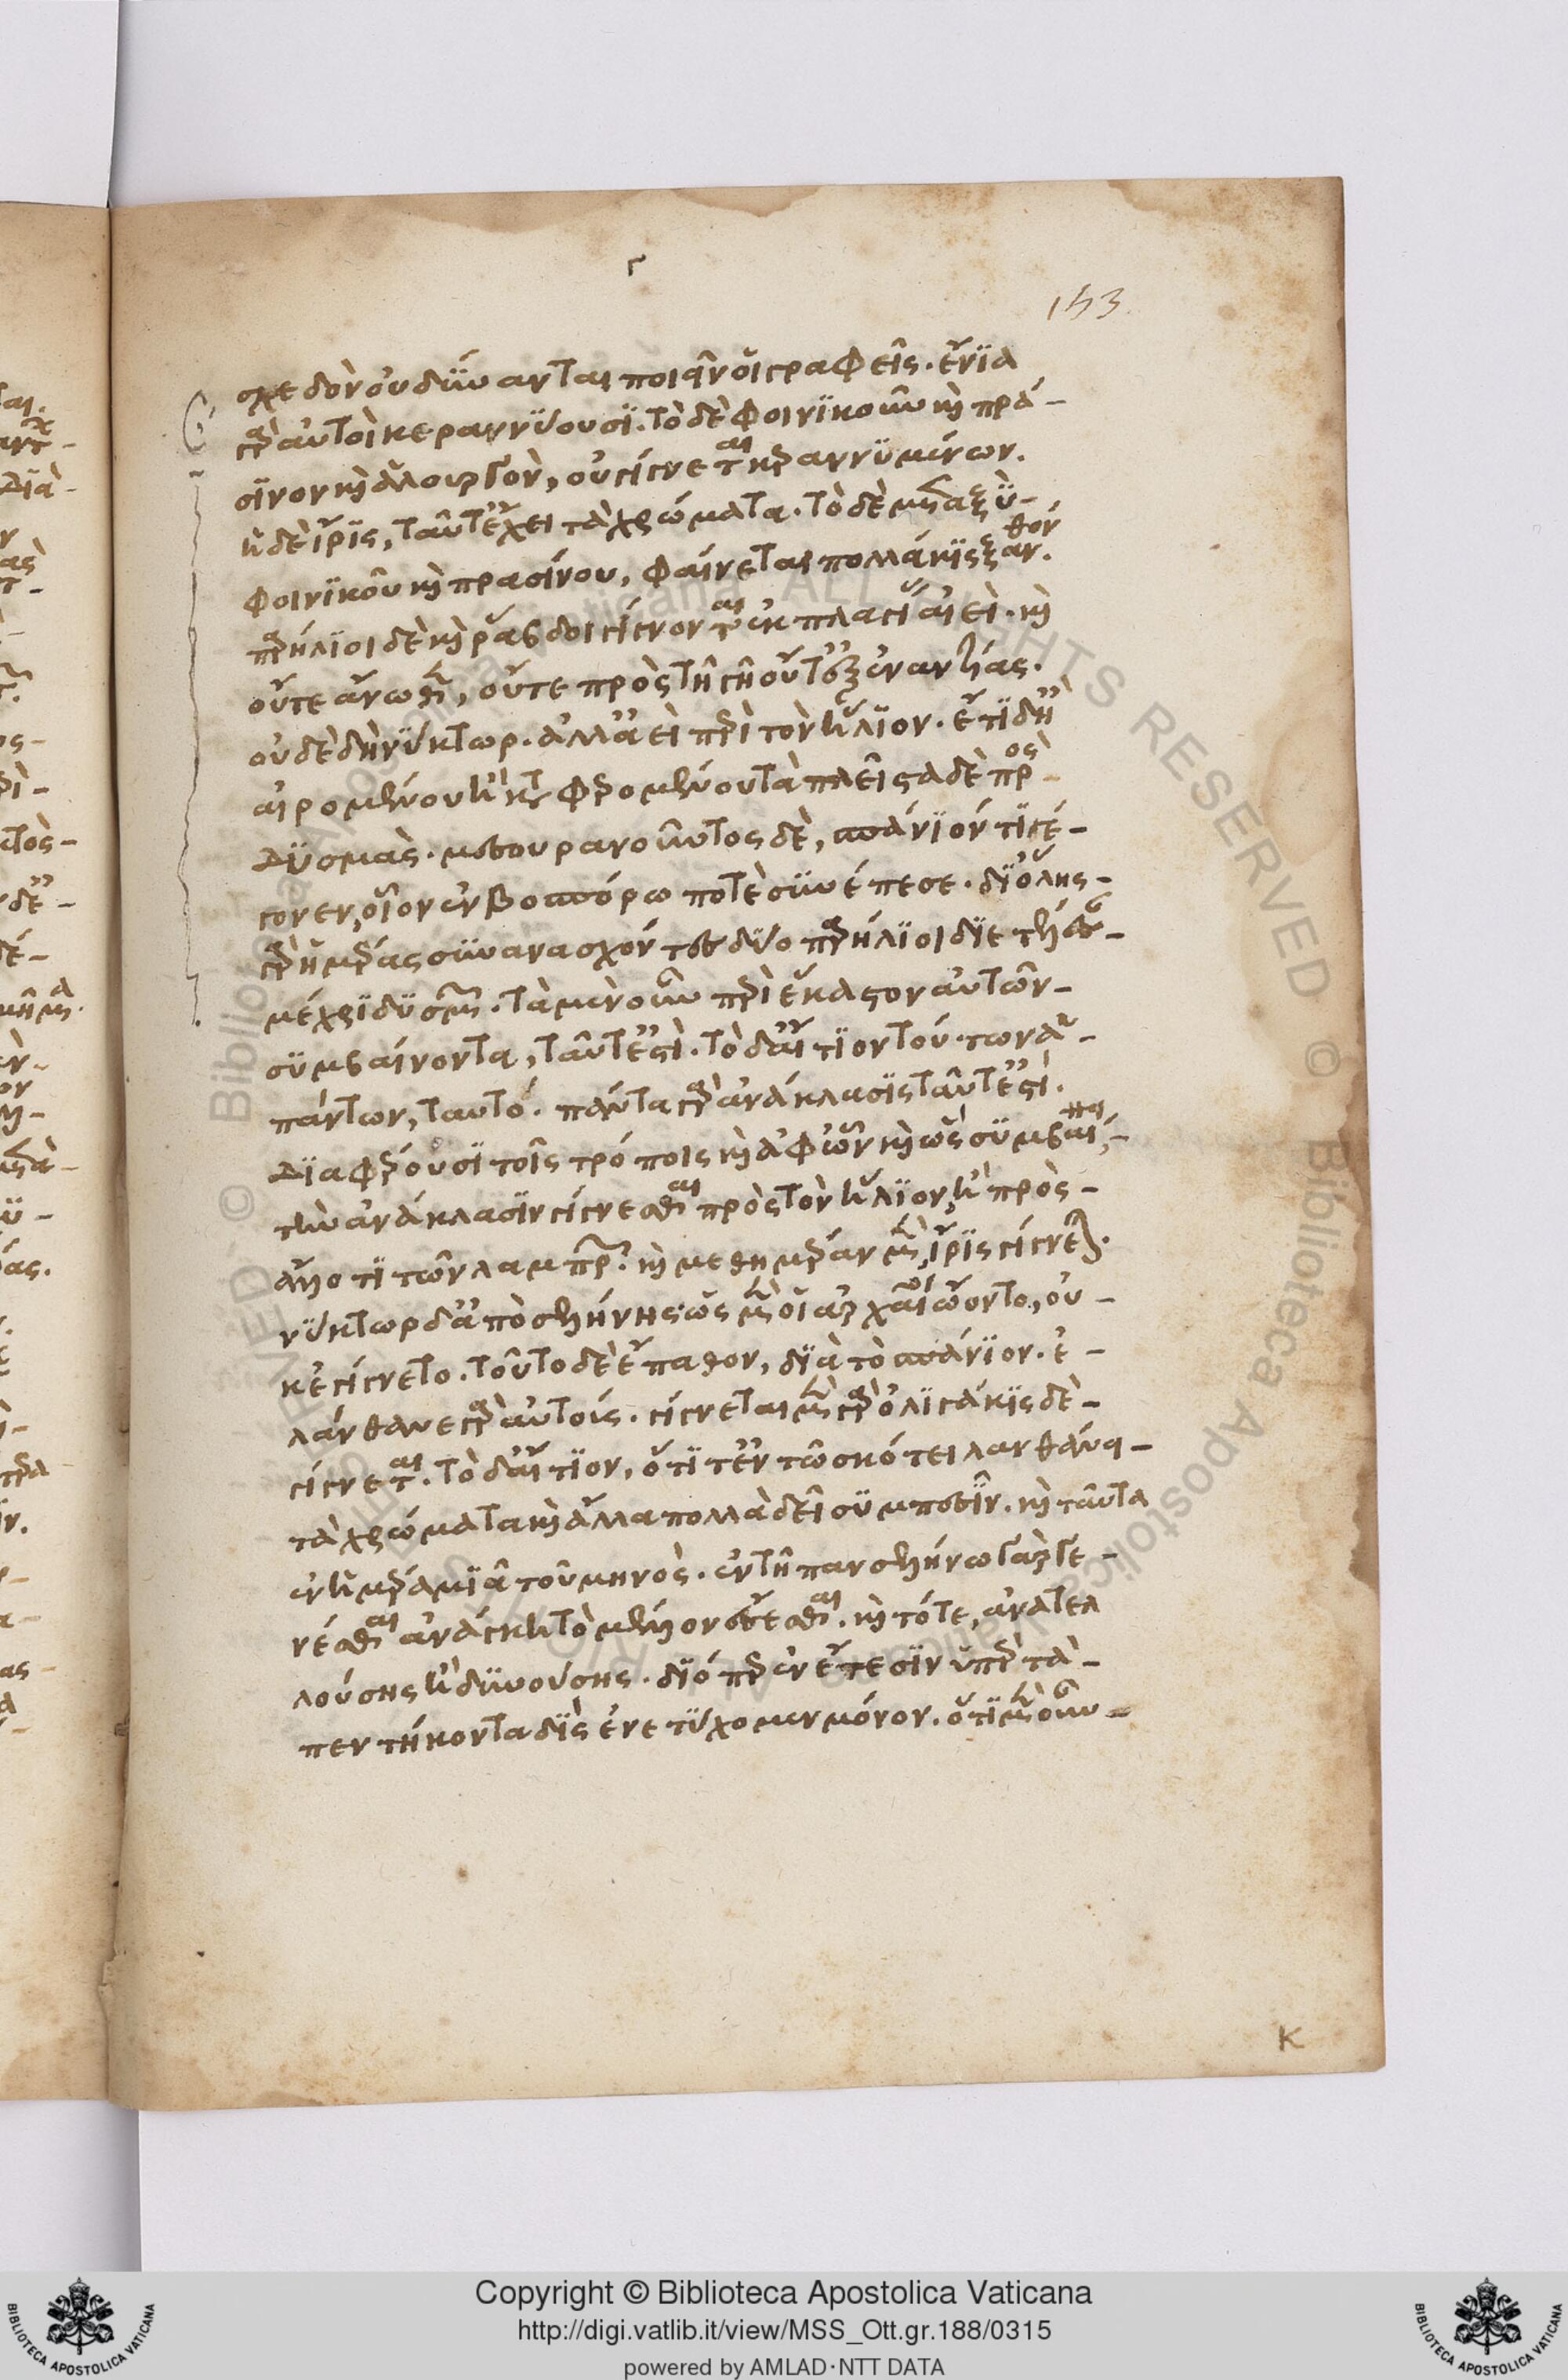 γ
153.
σχεδὸν οὐ δύνανται ποιεῖν οἱ γραφεῖς. ἔνια
γὰρ αὐτοὶ κεραννύουσι. τὸ δὲ φοινικοῦν καὶ πρά-
σινον καὶ ἁλουργὸν, οὐ γίγνεται κεραννύμενον.
ἡ δὲ ἶρις, ταῦτ' ἔχει τὰ χρώματα. τὸ δὲ μεταξὺ-
φοινικοῦ καὶ πρασίνου, φαίνεται πολλάκις ξανθόν.
παρήλιοι δὲ καὶ ῥάβδοι γίγνονται ἐκ πλαγίας αἰεὶ. καὶ
οὔτε ἄνωθεν, οὔτε πρὸς τῇ γῇ οὔτ' ἐξ ἐναντίας.
οὐδὲ δὴ νύκτωρ. ἀλλ' ἀεὶ περὶ τὸν ἥλιον. ἔτι δὲ ἢ
αἰρομένου ἢ καταφερομένου τὰ πλεῖστα δὲ πρὸς
δυσμάς. μεσουρανοῦντος δὲ, σπάνιον τι γέ-
γονεν, οἷον ἐν βοσπόρω ποτὲ συνέπεσε. δι' ὅλης-
γὰρ ἡμέρας συνανασχόντες δύο παρήλιοι διετέλεσαν-
μέχρι δυσμῶν. τὰ μὲν οὖν περὶ ἕκαστον αὐτῶν-
συμβαίνοντα, ταῦτ' ἐστὶ. τὸ δ' αἴτιον τούτων ἁ-
πάντων, ταυτό. πάντα γὰρ ἀνάκλασις ταῦτ' ἐστί.
διαφέρουσι τοῖς τρόποις καὶ ἀφ' ὧν καὶ ὡς συμβαίνει-
τὴν ἀνάκλασιν γίγνεσθαι πρὸς τὸν ἥλιον, ἢ πρὸς-
ἄλλο τι τῶν λαμπρῶν. καὶ μεθημέραν μὲν, ἶρις γίγνεται.
νύκτωρ δ' ἀπὸ σελήνης ὡς μὲν οἱ ἀρχαῖοι ὤοντο, οὐ-
κ ἐγίγνετο. τοῦτο δ' ἔπαθον, διὰ τὸ σπάνιον. ἐ-
λάνθανε γὰρ αὐτούς. γίγνεται μὲν γὰρ ὀλιγάκις δὲ-
γίγνεται. τὸ δ' αἴτιον, ὅτι τ' ἐν τῶ σκότει λανθάνει-
τὰ χρώματα καὶ ἄλλα πολλὰ δεῖ συμπεσεῖν. καὶ ταῦτα
ἐν ἡμέρα μιᾶ τοῦ μηνός. ἐν τῇ πανσελήνω γὰρ γε-
νέσθαι ἀνάγκη τὸ μέλλον ἔσεσθαι. καὶ τότε, ἀνατελ
λούσης ἢ δυνούσης. διόπερ ἐν ἔτεσιν ὑπὲρ τὰ-
πεντήκοντα δὶς ἐνετύχομεν μόνον. ὅτι μὲν οὖν-
K
Copyright © Biblioteca Apostolica Vaticana
http://digi.vatlib.it/view/MSS_Ott.gr.188/0315
powered by AMLAD·NTT DATA